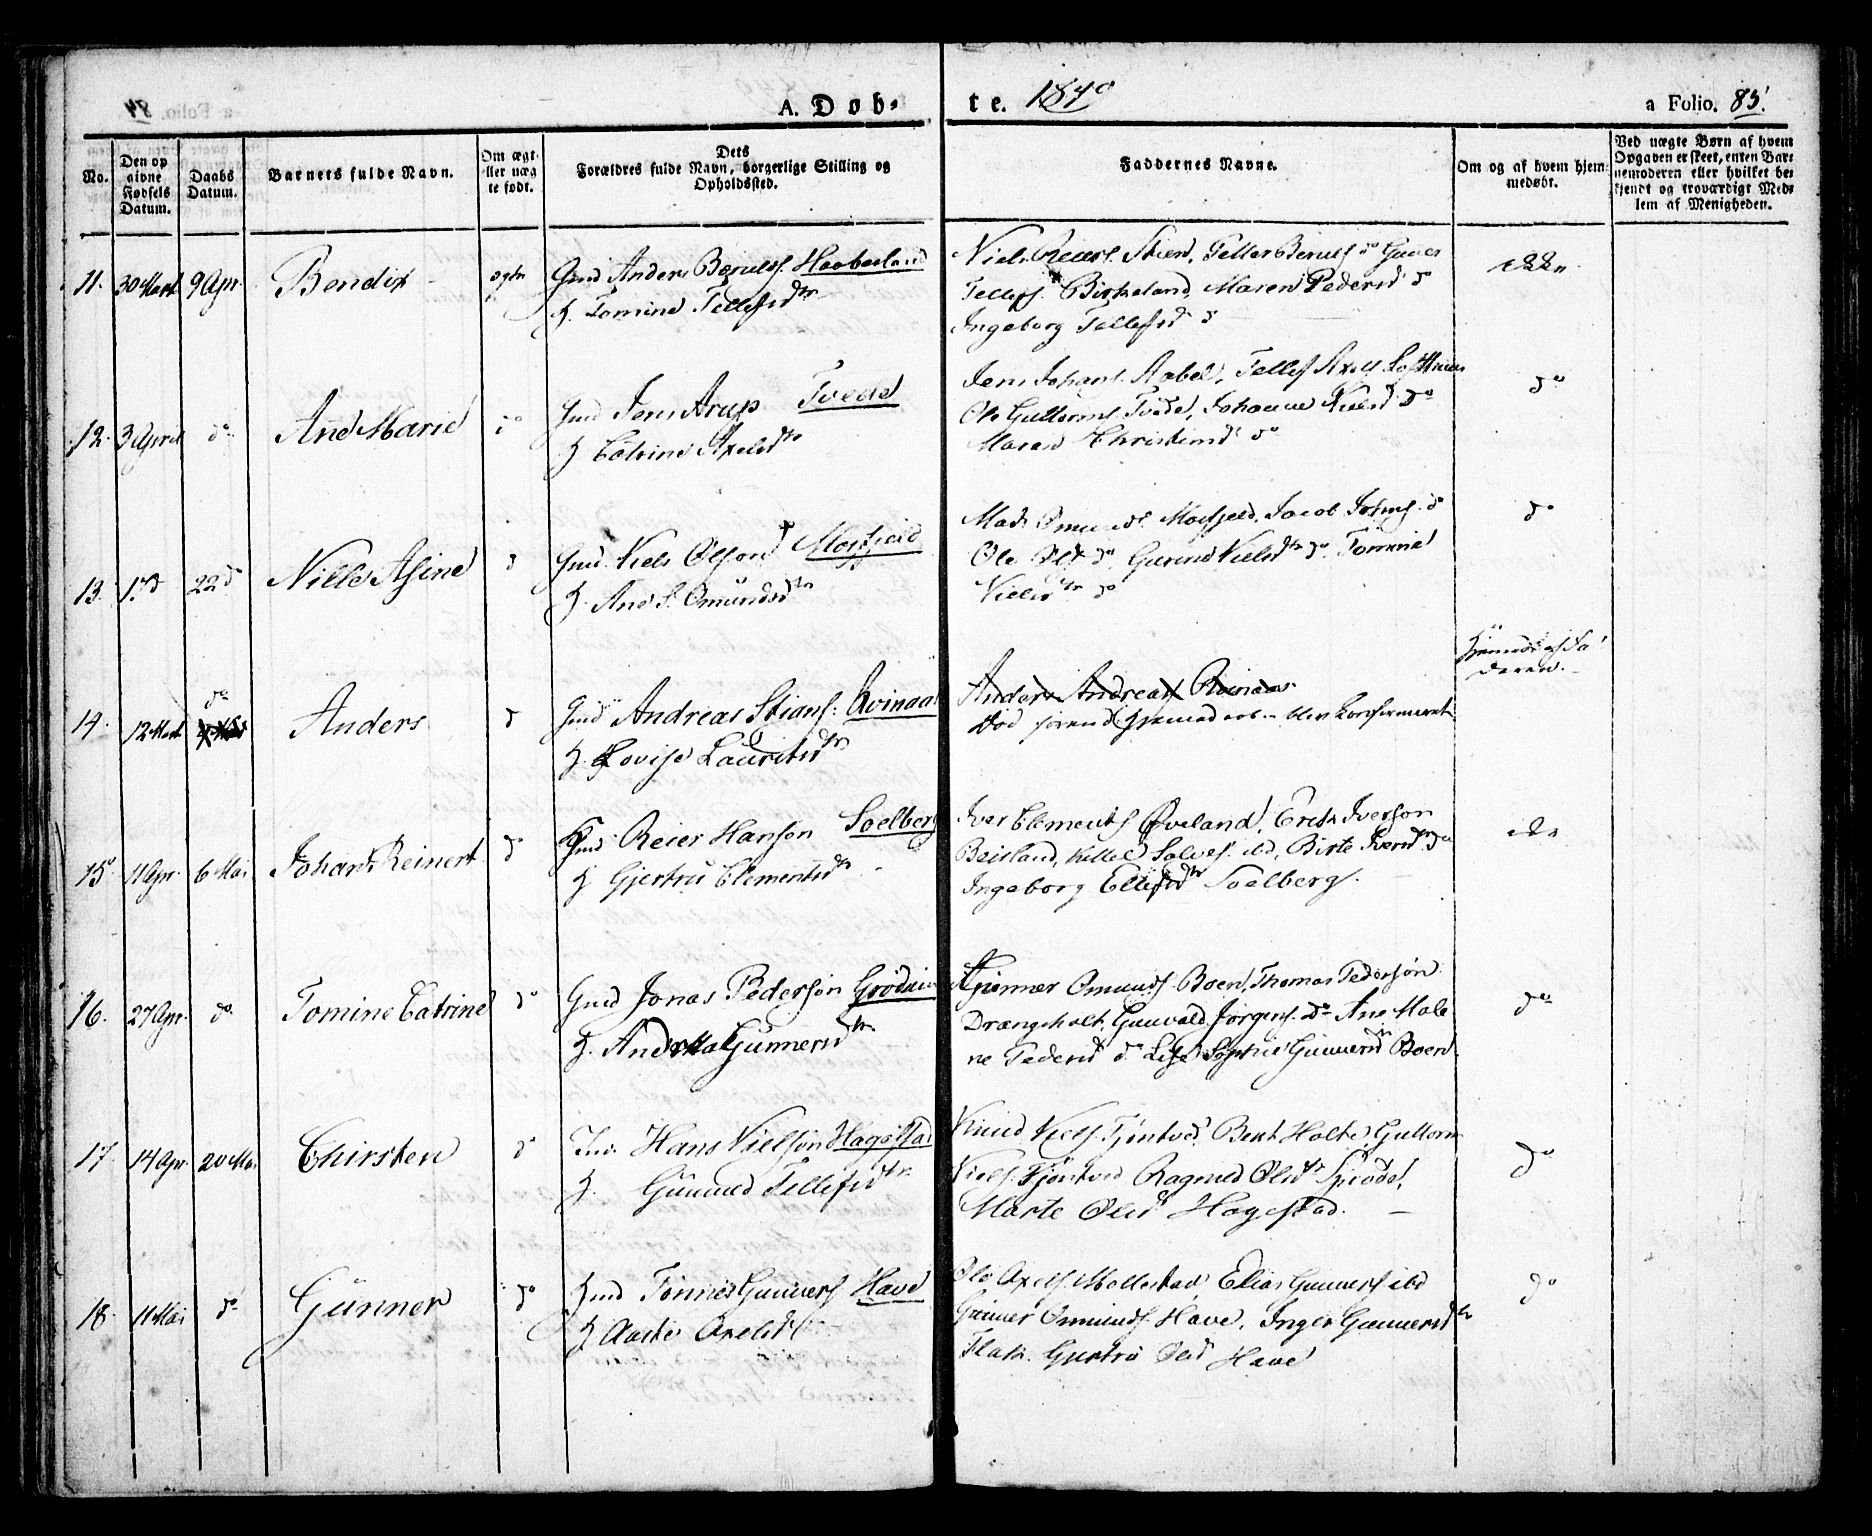 A. Døb-
te. 1840
a Folio. 85.
No.
Den op
givne
Fødsels
Datum.
Daabs
Datum.
Barnets fulde Navn.
Om ægte
eller uæg
te født.
Dets
Forældres fulde Navn, borgerlige Stilling og
Opholdssted.
Faddernes Navne.
Om og af hvem hjem-
medøbt.
Ved uægte Børn af hvem
Opgaven er skeet, enten Bar-
nemoderen eller hvilket be-
kjendt og troværdigt Med-
lem af Menigheden.
11. 30 Mart 9 Apr. Bendix ægte
Gmd Anders Berulfs.
H. Tomine Tellefsdtr
Tellefs. Birkeland, Maren Pedersd do
Ingeborg Tellefsd do
12. 3 April do Ane Marie do
Gmd Jens Arup Tvede
H Catrine Axelsdtr
Jens Johans. Aabel, Tellef Axels.
Ole Guttorms. Tvede, Johanne Nielsd do
Maren Christensd do
do
13. 1. do 22 do Nille Asine do
Gmd. Niels Olson Mosfjeld
H. Ane S. Omundsdtr
Mads Omunds. Mosfjeld, Jacob Johns. do
Ole Ols. do, Gurine Nielsdtr do, Tomine
Nielsdtr do
do
14. 12 Mart do Anders do
Gmd Andreas Stians. Qvinaa
H. Lovise Lauritsdtr
Anders Andreas
død førend Hjemmedaab blev Confirmeret
Hjemmed. af Fa
deren.
15. 11 Apr. 6 Mai Johan Reinert do
Gmd. Reier Hanson Soelberg
H Gjertru Clementsdtr
Iver Clements Øveland, Erik Iverson
Beisland, Kittel Salves. ibd, Birte Iversdtr do
Ingeborg Ellefsdtr Soelberg.
16. 27 Apr. do Tomine Catrine do
Gmd Jonas Pederson
H. Andrea Gunnersdtr
Gunner Omunds. Boen, Thomas Pederson
Drangsholt, Gunvald Jørgens. do Ane Male
ne Pedersd do Lise Sophie Gunnersd Boen
do
17. 14 Apr. 20 Mai Chirsten do
Hans Nielson Hagestad
H. Gunned Tellefsdtr
Knud Niels. Tjøntved, Bent Holte, Guttorm
Niels. Tjøntved Ragned Olsdtr
Marte Olsd Hagestad.
do
18. 11 Mai do Gunner do
Gmd Tønnes Gunners. Have
H Aaste Axelsd
Ole Axels. Mollestad, Elias Gunners. ibd
Gunner Omunds. Have, Inger Gunnersdtr
Flak. Gjertru Olsd Have
do